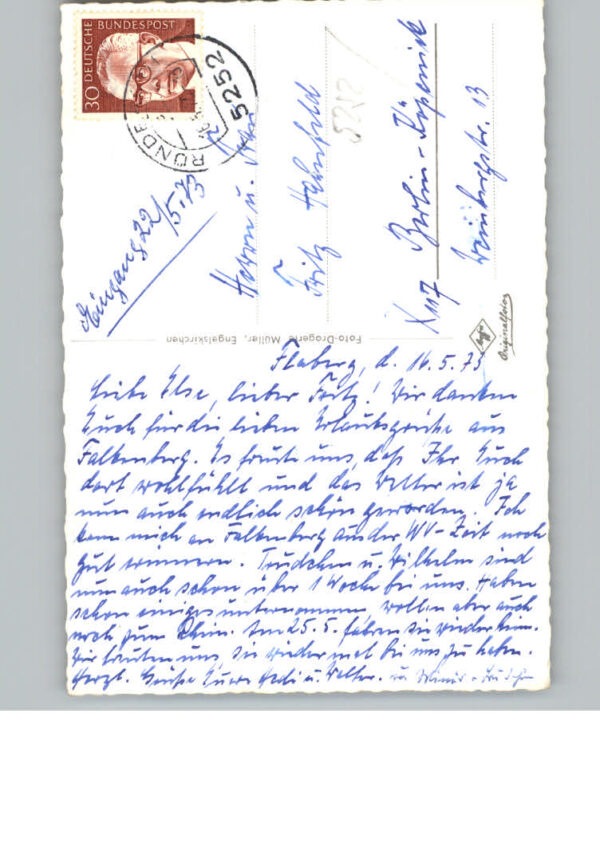 30 DEUTSCHE BUNDESPOST
RÜNDE
5252
Eingang 22/5.73
Herrn u. Frau
Fritz Hahnfeld
5252
Berlin-Köpenick
Weinbergstr. 13
Foto-Drogerie Müller, Engelskirchen
Agfa
Originalfoto
d. 16.5.73
Liebe Else, lieber Fritz! Wir danken
Euch für die lieben Urlaubsgrüße aus
Falkenberg. Es freut uns, daß Ihr Euch
dort wohlfühlt und das Wetter ist ja
nun auch endlich schön geworden. Ich
kann mich an Falkenberg aus der WV-Zeit noch
gut erinnern. Trudchen u. Wilhelm sind
nun auch schon über 1 Woche bei uns. Haben
schon einiges unternommen, wollen aber auch
noch zum Rhein. Am 25.5. fahren sie wieder heim.
Wir freuten uns, sie wieder mal bei uns zu haben.
Herzl. Grüße Eure Hedi u. Walter.